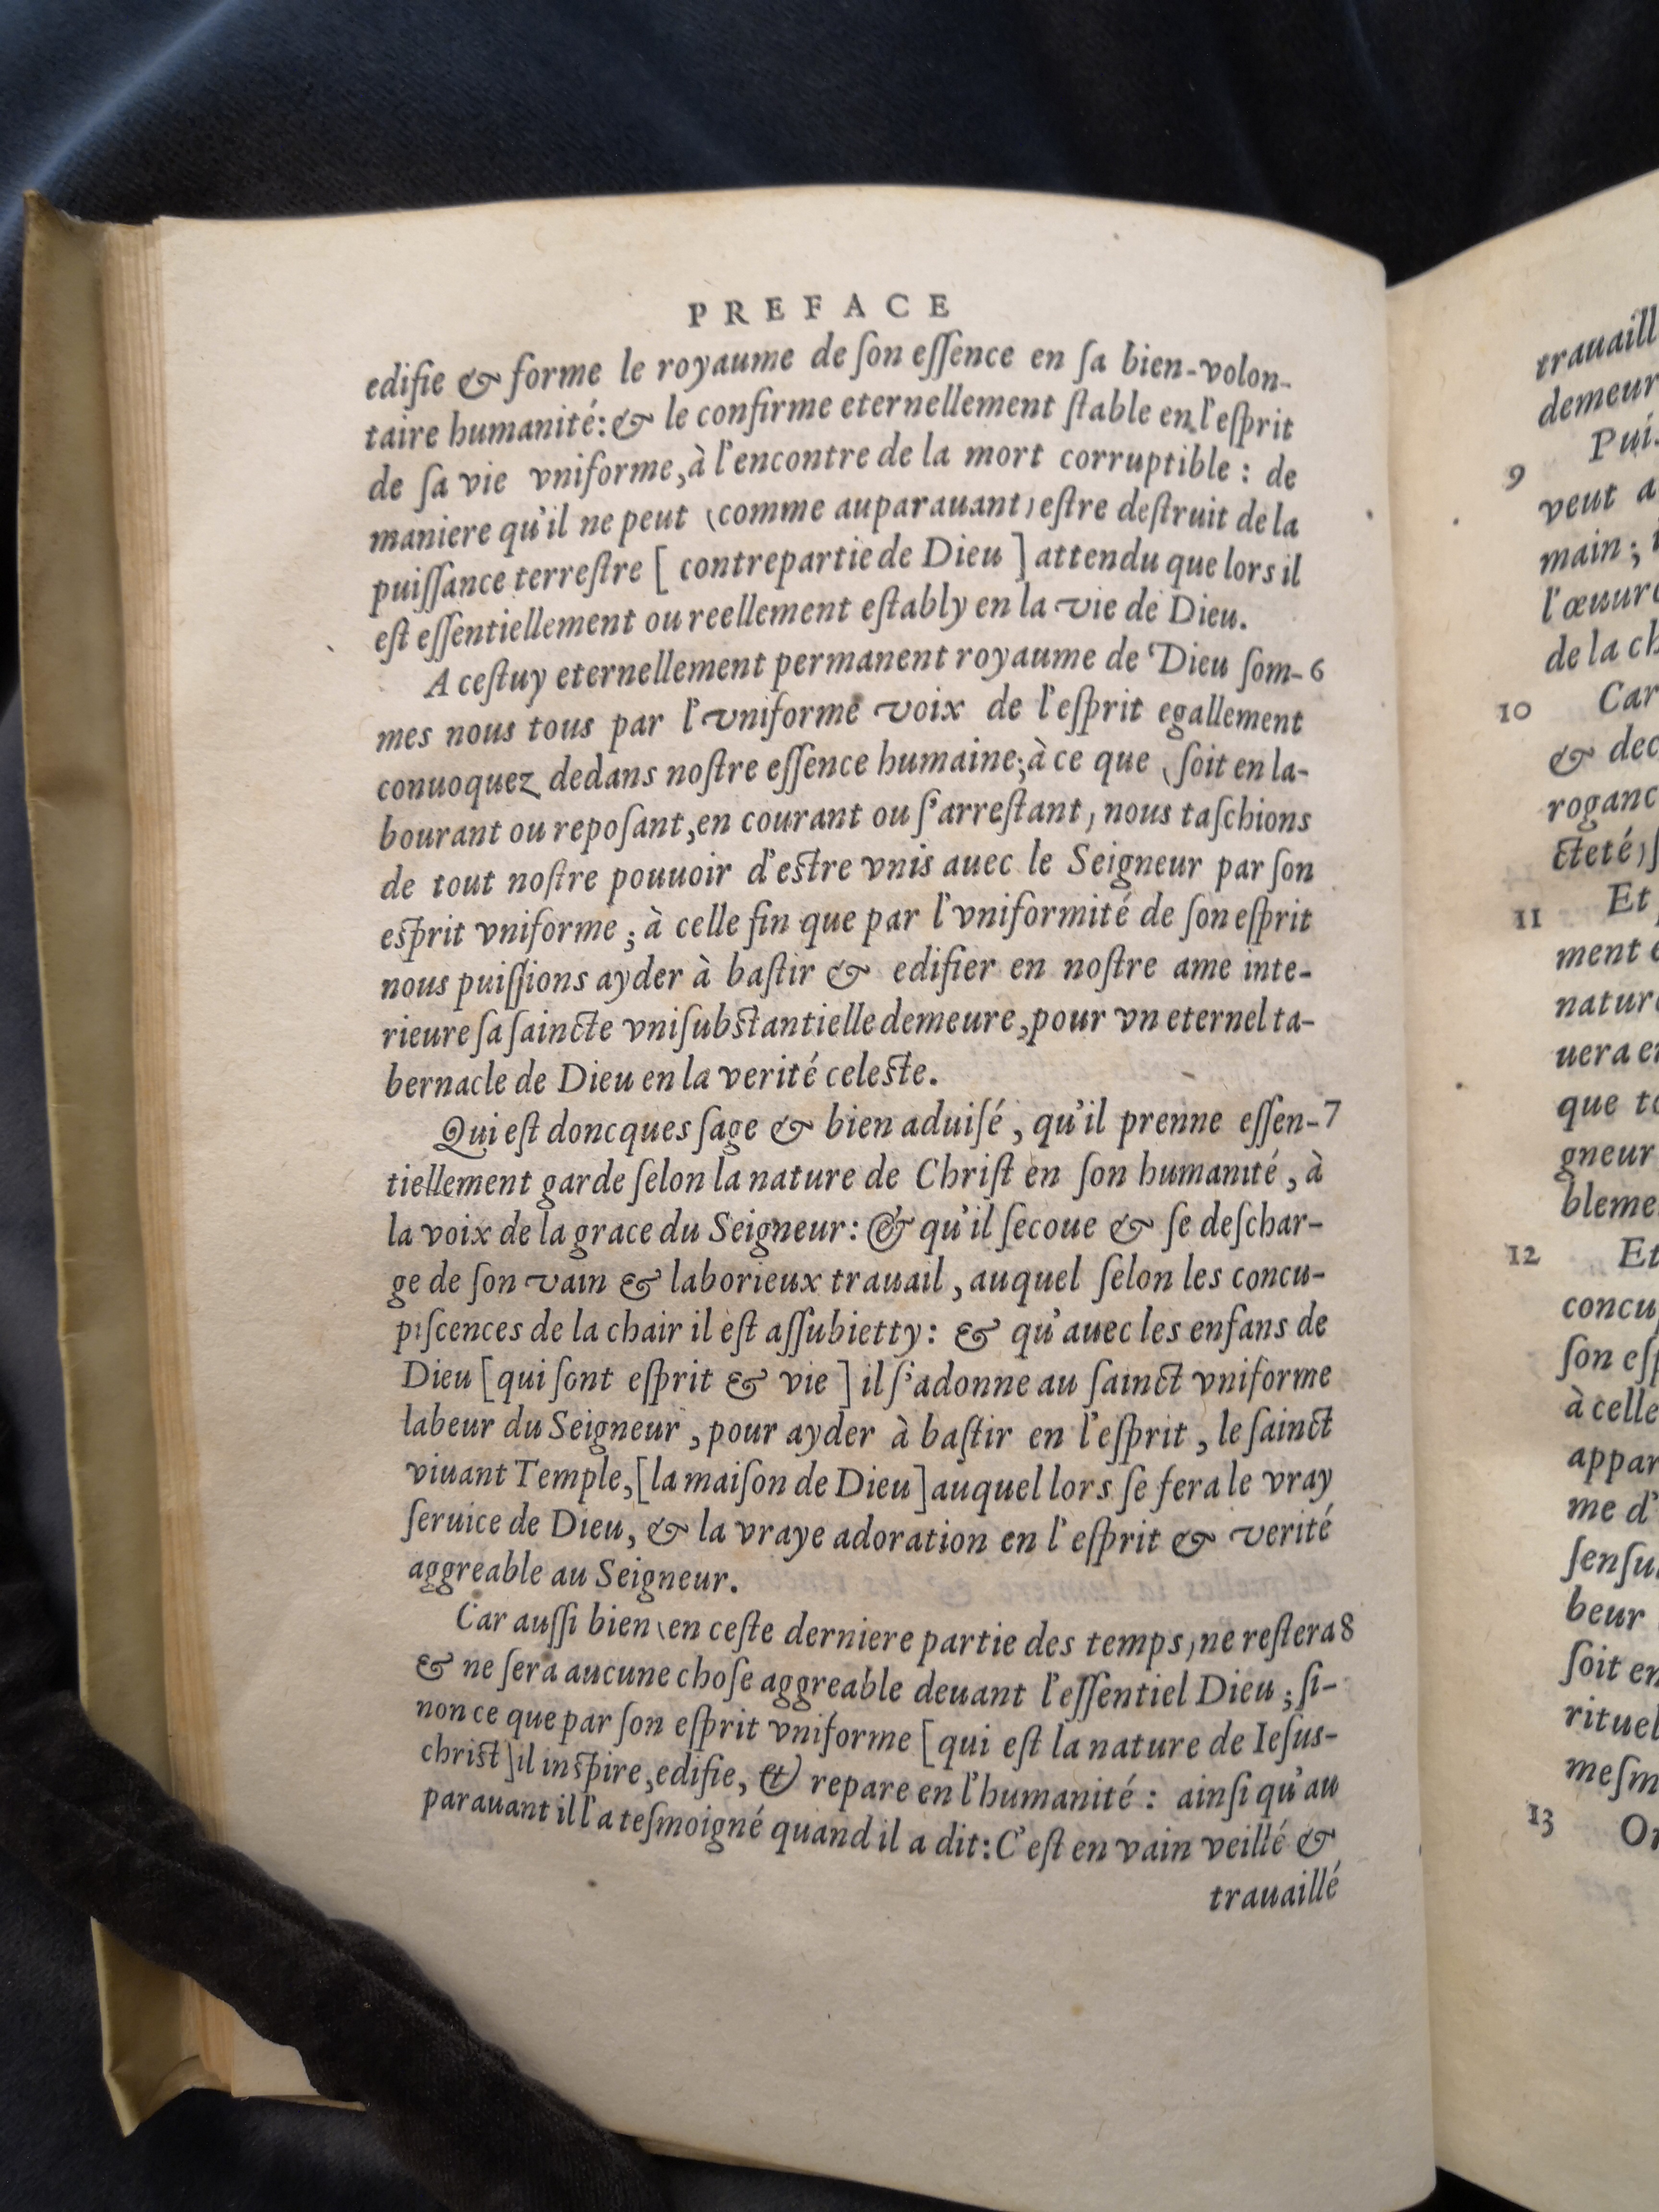 PREFACE
edifie & forme le royaume de ſon eſſence en ſa bien-volon-
taire humanité: & le confirme eternellement ſtable en l'eſprit
de ſa vie vniforme, à l'encontre de la mort corruptible : de
maniere qu'il ne peut (comme auparauant) eſtre deſtruit de la
puiſſance terreſtre [ contrepartie de Dieu ] attendu que lors il
eſt eſſentiellement ou reellement eſtably en la vie de Dieu.
A ceſtuy eternellement permanent royaume de Dieu ſom- 6
mes nous tous par l'vniforme voix de l'eſprit egallement
conuoquez dedans noſtre eſſence humaine; à ce que (ſoit en la-
bourant ou repoſant, en courant ou ſ'arreſtant) nous taſchions
de tout noſtre pouuoir d'eſtre vnis auec le Seigneur par ſon
eſprit vniforme ; à celle fin que par l'vniformité de ſon eſprit
nous puiſſions ayder à baſtir & edifier en noſtre ame inte-
rieure ſa ſaincte vniſubſtantielle demeure, pour vn eternel ta-
bernacle de Dieu en la verité celeſte.
Qui eſt doncques ſage & bien aduiſé, qu'il prenne eſſen- 7
tiellement garde ſelon la nature de Chriſt en ſon humanité, à
la voix de la grace du Seigneur: & qu'il ſecoue & ſe deſchar-
ge de ſon vain & laborieux trauail, auquel ſelon les concu-
piſcences de la chair il eſt aſſubietty: & qu'auec les enfans de
Dieu [qui ſont eſprit & vie ] il ſ'adonne au ſainct vniforme
labeur du Seigneur, pour ayder à baſtir en l'eſprit, le ſainct
viuant Temple, [la maiſon de Dieu] auquel lors ſe fera le vray
ſeruice de Dieu, & la vraye adoration en l'eſprit & verité
aggreable au Seigneur.
Car auſſi bien (en ceſte derniere partie des temps) ne reſtera 8
& ne ſera aucune choſe aggreable deuant l'eſſentiel Dieu ; ſi-
non ce que par ſon eſprit vniforme [qui eſt la nature de Ieſus-
chriſt] il inſpire, edifie, & repare en l'humanité : ainſi qu'au
parauant il l'a teſmoigné quand il a dit: C'eſt en vain veillé &
trauaillé
trauaill
demeur
9
veut a
main;
l'œuure
de la ch
10 Car
& dec
roganc
cteté)
11 Et
ment
nature
uera en
que to
gneur
bleme
12 Et
concu
ſon eſp
à celle
appar
me d'
ſenſu
beur
ſoit en
rituel
meſm
13 Or